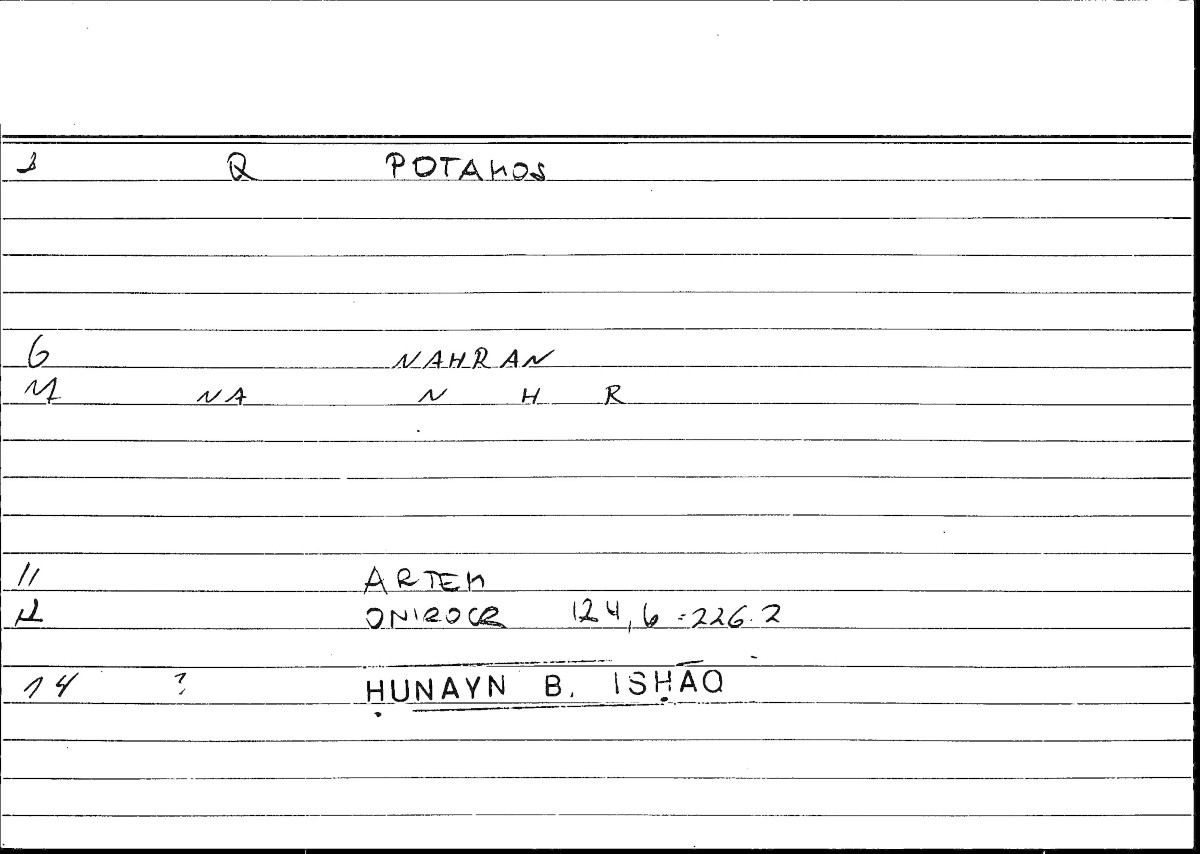 1 Q POTAMOS
6 NAHRAN
NA N H R
11 ARTEM
12 ONIROCR 124,6 =226.2
14 ? ḤUNAYN B. ISḤĀQ